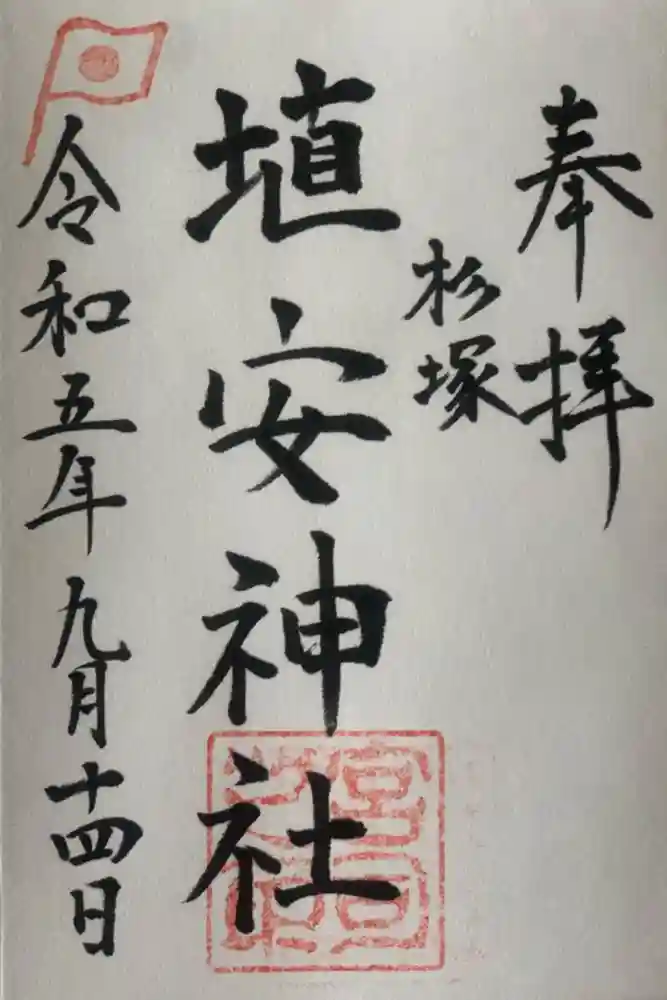 奉拝
杉塚
埴安神社
宮司之印
令和五年九月十四日